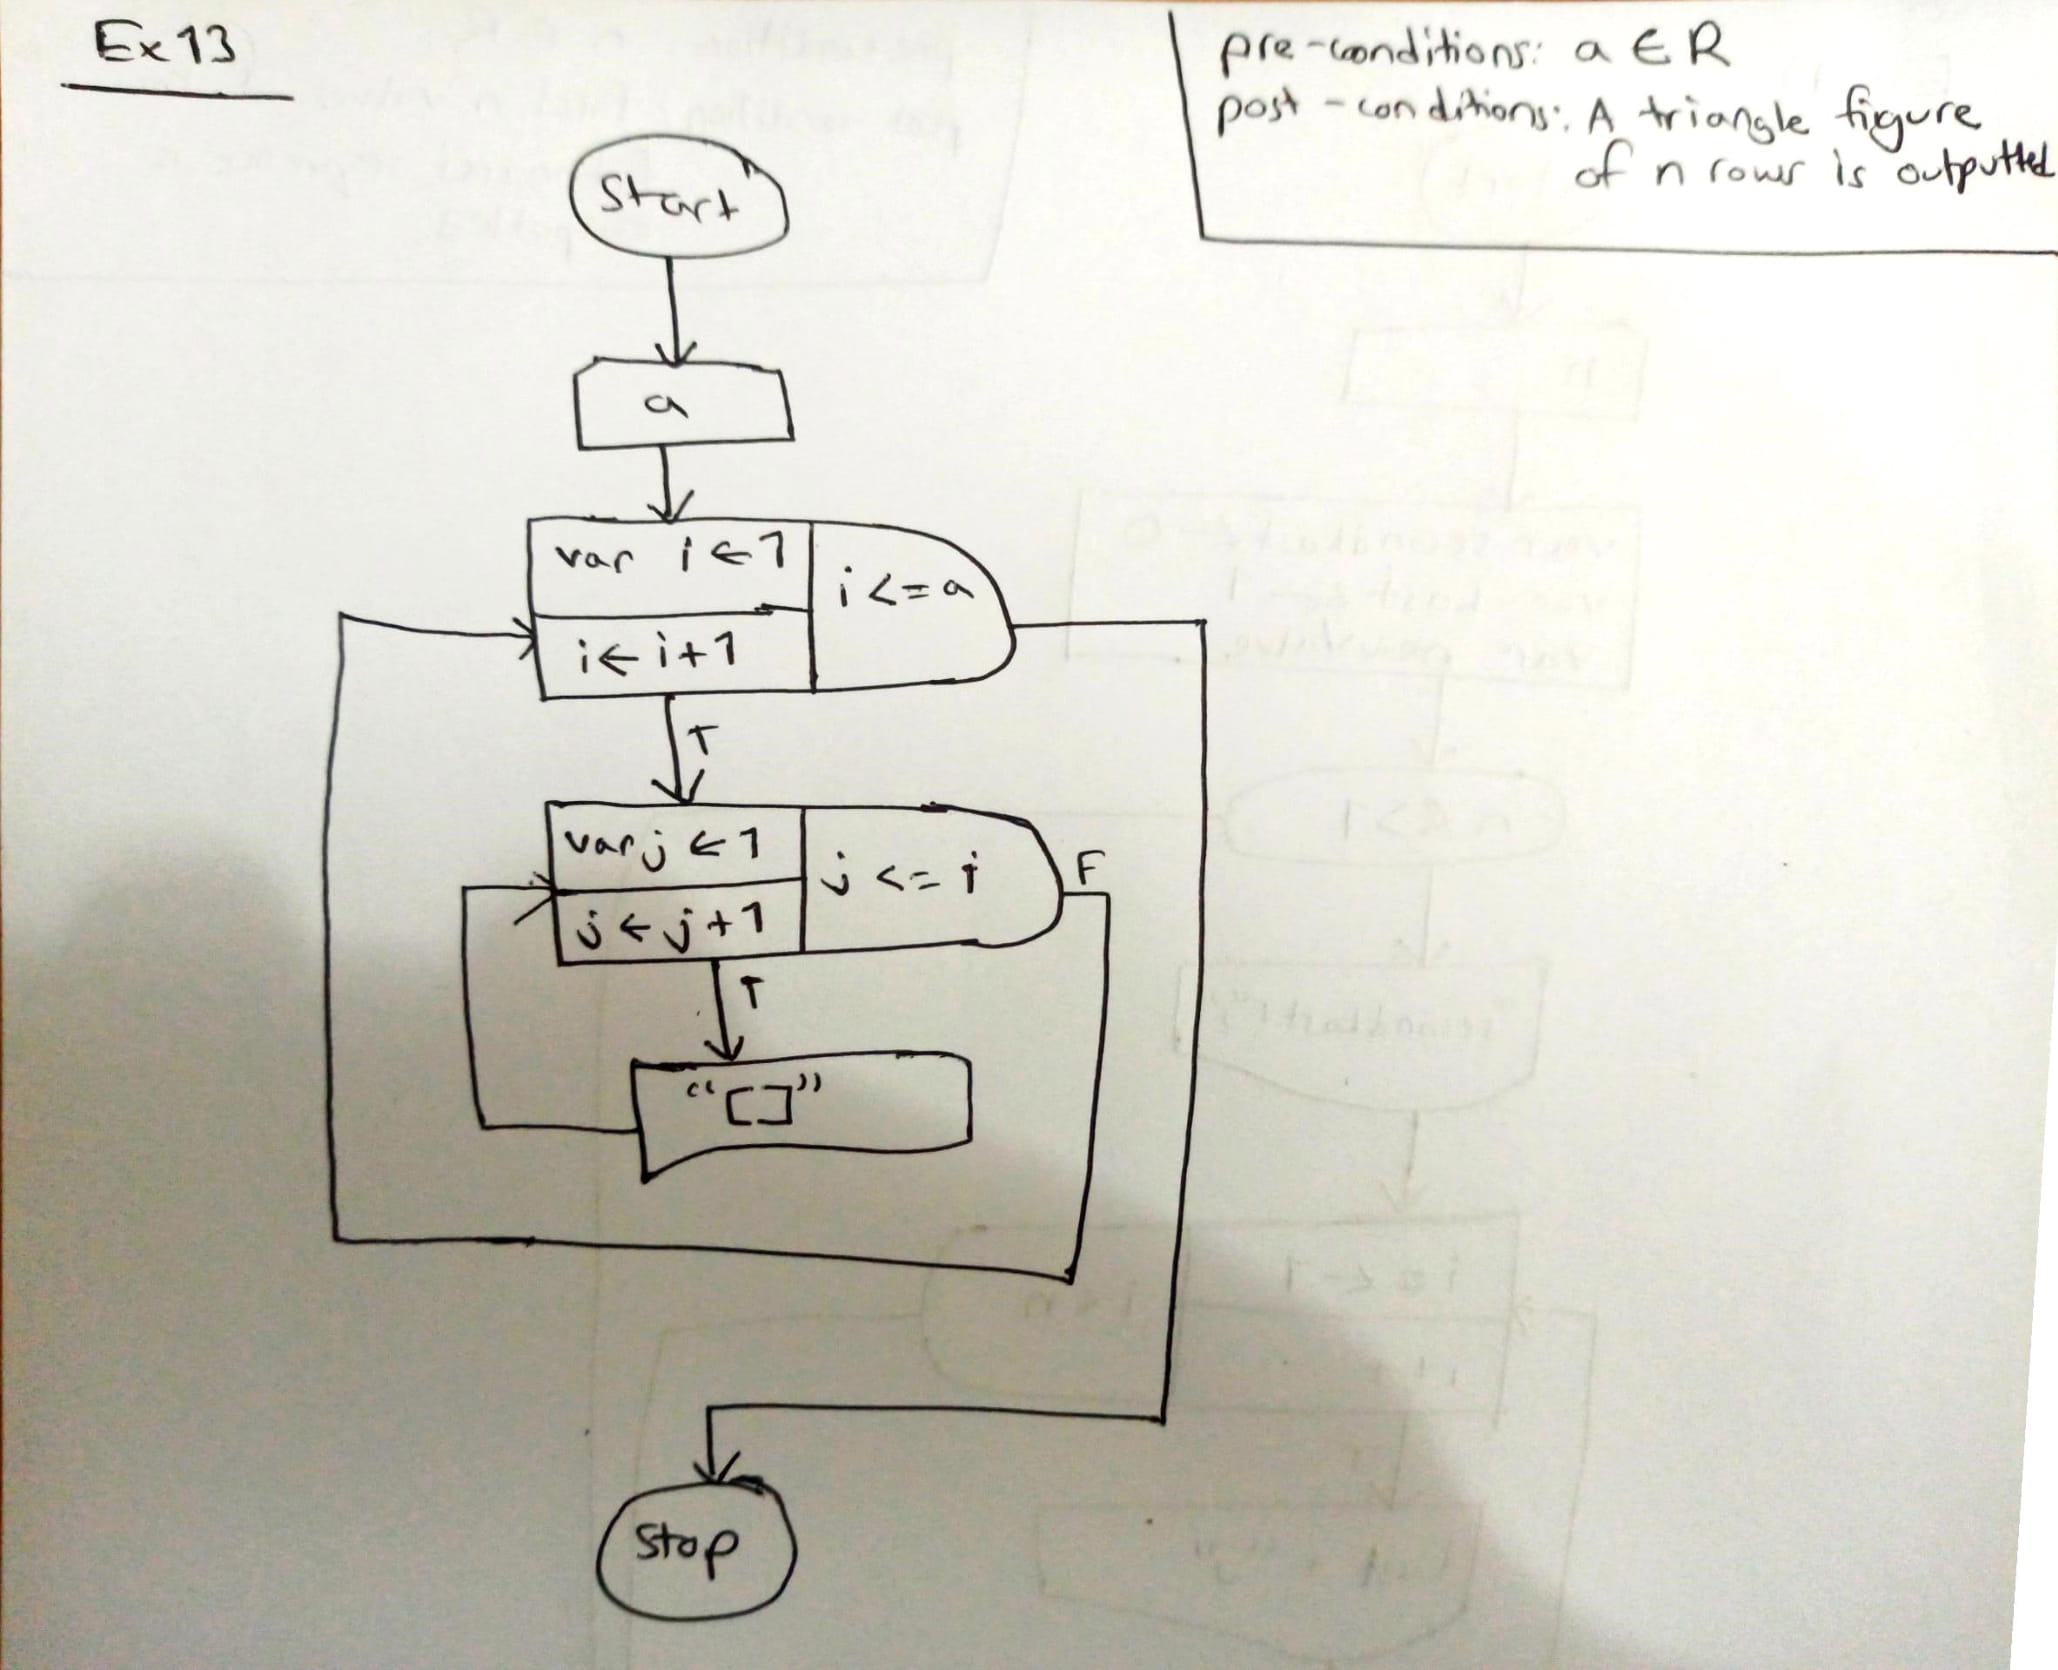 Ex13
pre-conditions: a ∈ R
post-conditions: A triangle figure
of n rows is outputted
Start
a
var i ← 1
i <= a
i ← i+1
T
var j ← 1
j <= i
F
j ← j+1
T
"[]"
Stop